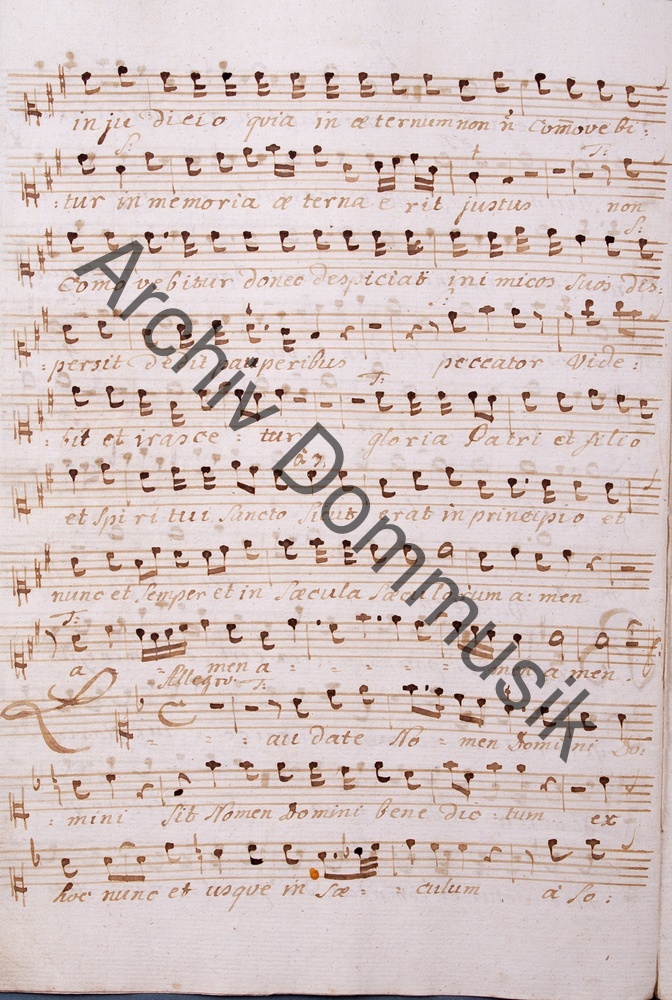 in ju di cio quia in æ ternum non n̄ com̄ove bi
S:
T:
:tur in memoria æ terna e rit justus non
S:
Como ve bitur donec despiciat ini micos suos dis:
S:
:persit dedit pauperibus peccator Vide:
T:
:bit et irasce : tur gloria Patri et filio
à 7.
et Spi ri tui Sancto Sicut erat in principio et
nunc et Semper et in Sæcula Sæculorum a: men
T:
a - - men a - - - - - men a men.
Allegro T:
L - - - au date No = men Domini Do:
: mini Sit Nomen Domini bene dic : tum ex
hoc nunc et usque in Sæ : - culum à So:
Archiv Dommusik